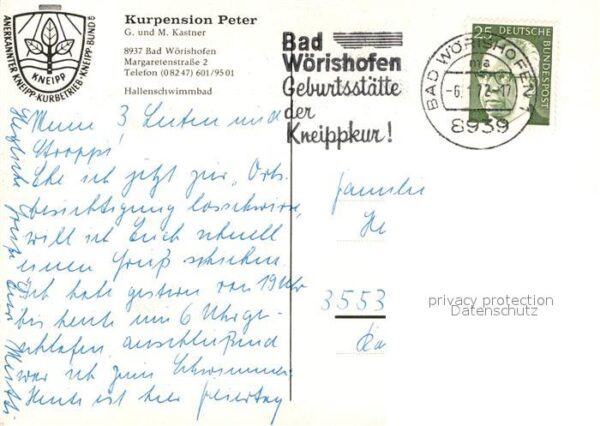 ANERKANNTER KNEIPP-KURBETRIEB · KNEIPP-BUND
KNEIPP
Kurpension Peter
G. und M. Kastner
8937 Bad Wörishofen
Margaretenstraße 2
Telefon (0 82 47) 601/95 01
Hallenschwimmbad
Bad
Wörishofen
Geburtsstätte
der
Kneippkur!
BAD WÖRISHOFEN 1
-6.1.72-17
ma
8939
25
DEUTSCHE
BUNDESPOST
Meine 3 Lieben und
Stroppi!
Ehe ich jetzt zur "Orts-
besichtigung losschwirre,
will ich Euch schnell
einen Gruß schicken.
Ich habe gestern von 19 Uhr
bis heute um 6 Uhr ge-
schlafen, anschließend
war ich zum Schwimmen
Heute ist hier Feiertag
Herzliche Grüße
Familie
He
3553
privacy protection
Datenschutz